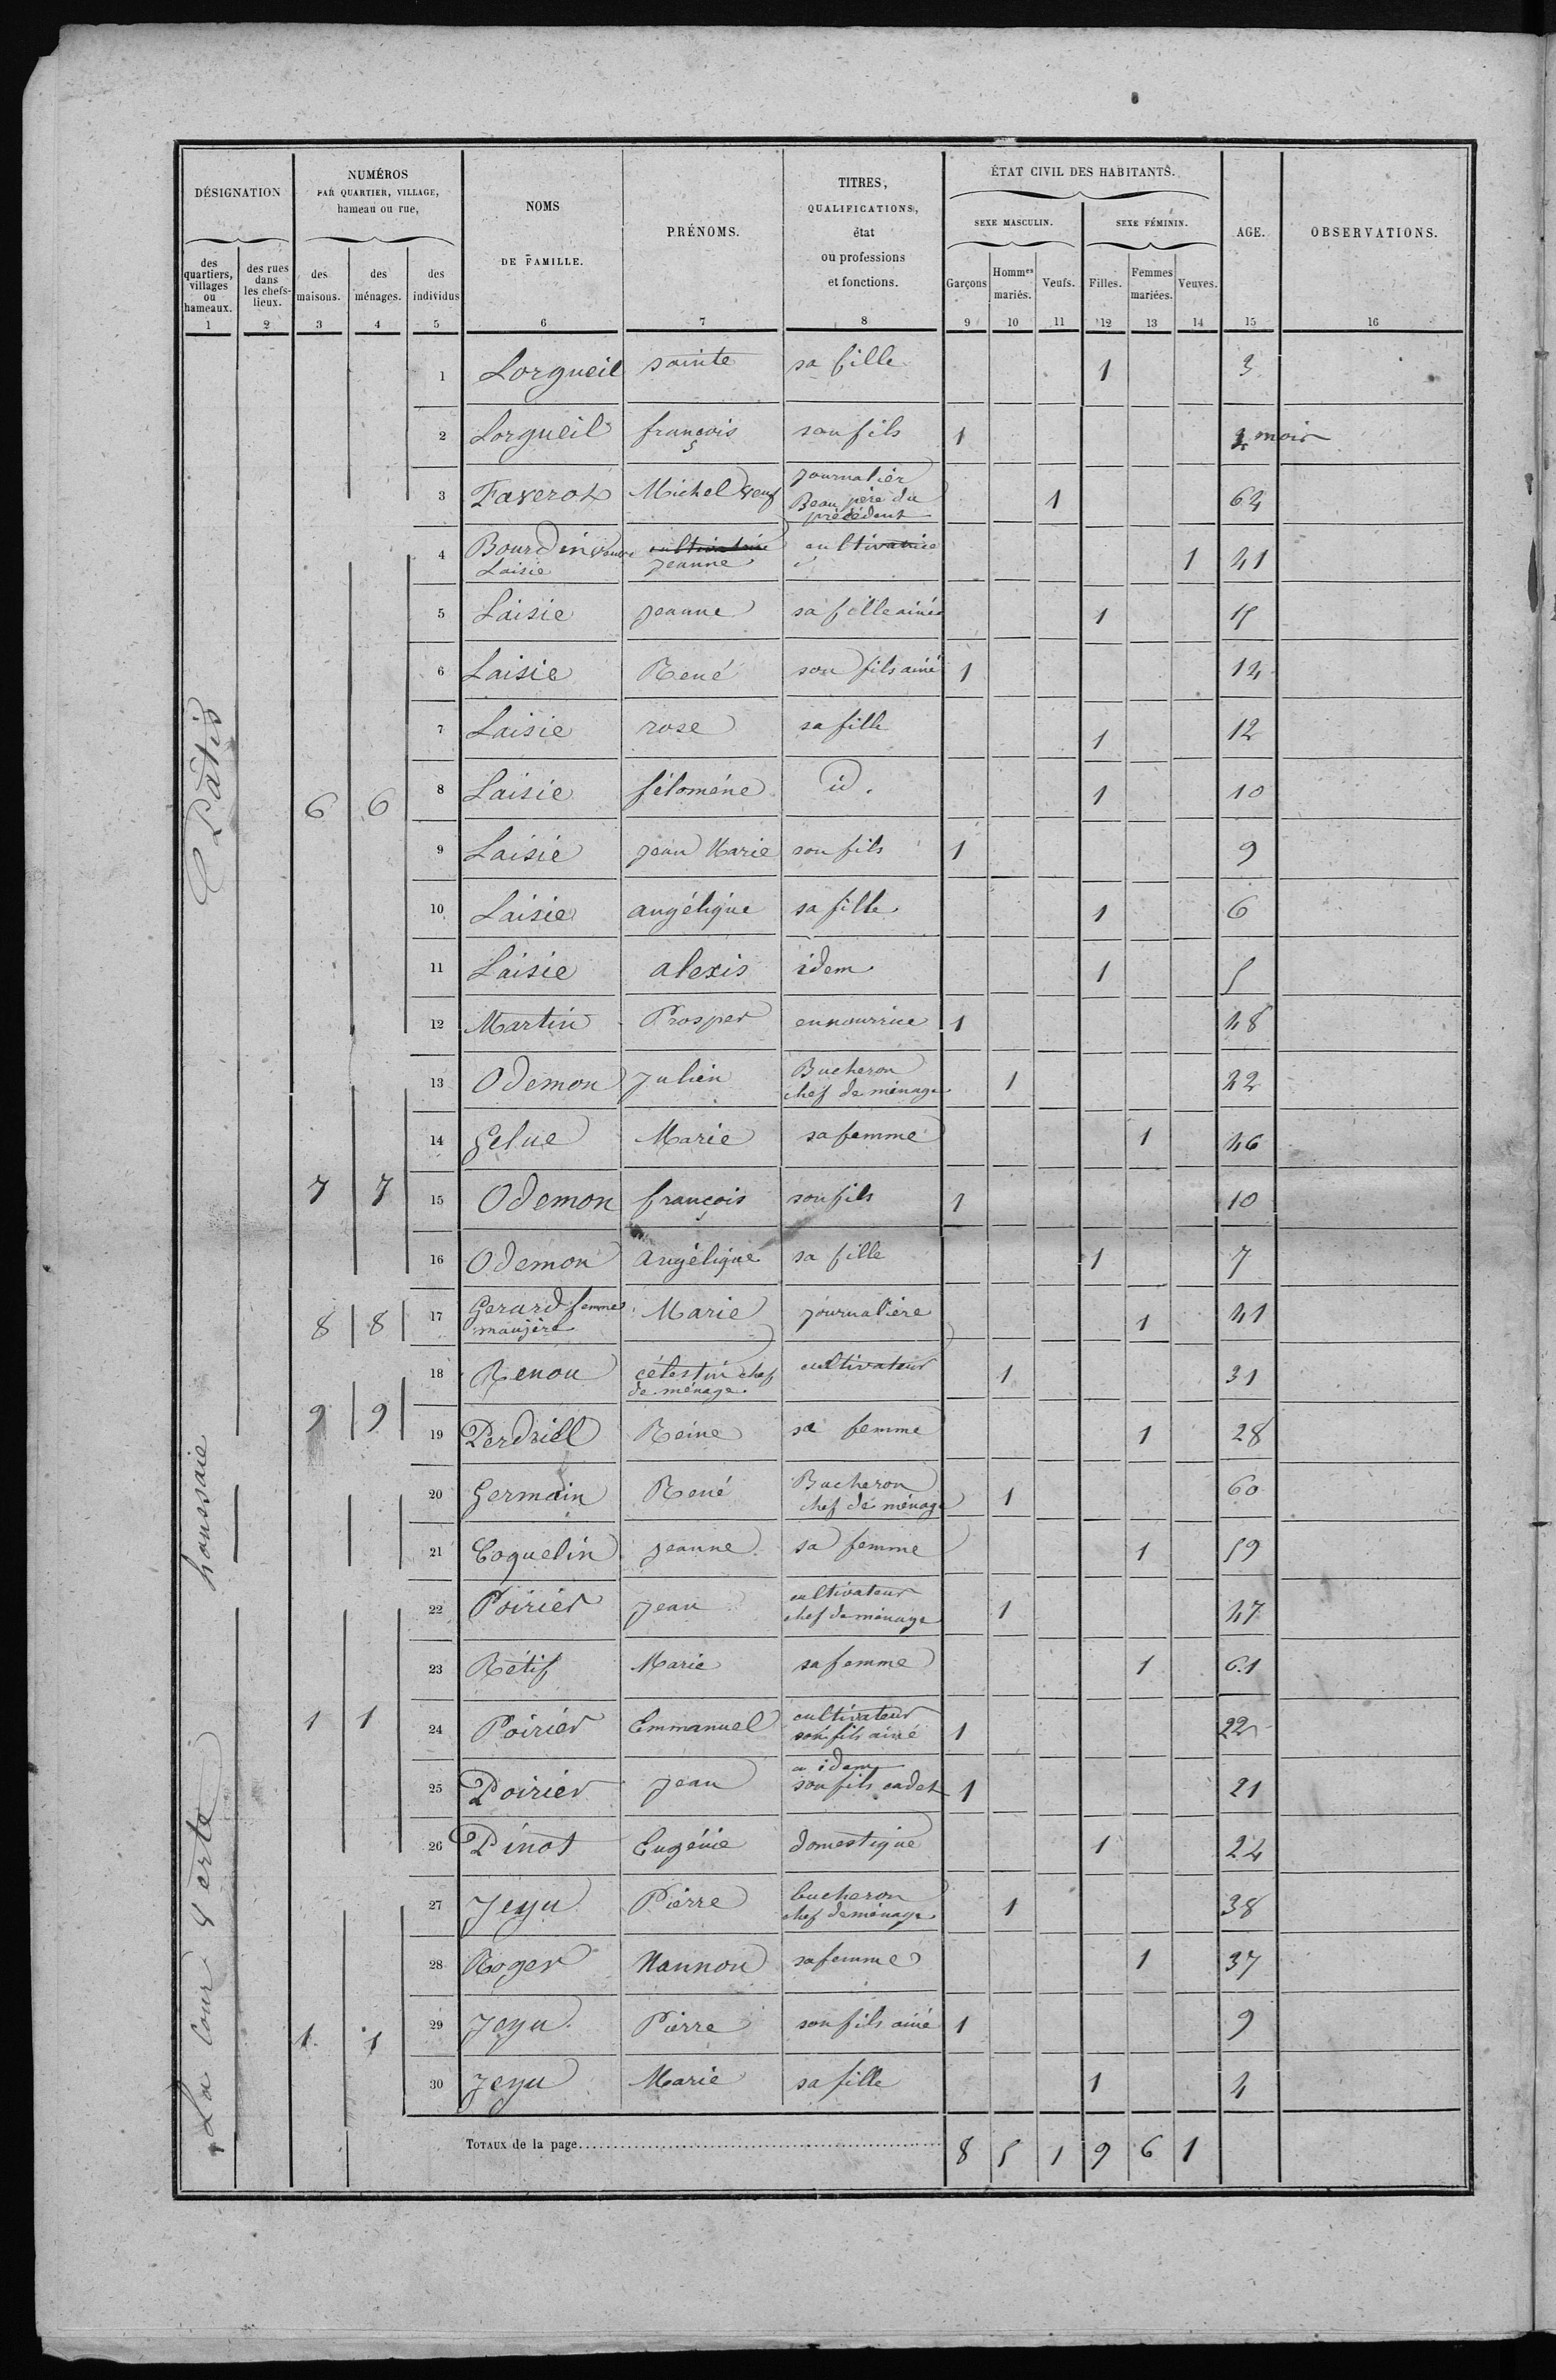 DÉSIGNATION
NUMÉROS
PAR QUARTIER, VILLAGE,
hameau ou rue,
NOMS
DE FAMILLE.
PRÉNOMS.
TITRES,
QUALIFICATIONS,
état
ou professions
et fonctions.
ÉTAT CIVIL DES HABITANTS.
SEXE MASCULIN.
SEXE FÉMININ.
AGE.
OBSERVATIONS.
des quartiers, villages ou hameaux.
des rues dans les chefs-lieux.
des maisons.
des ménages.
des individus
Garçons
Hommes mariés.
Veufs.
Filles.
Femmes mariées.
Veuves.
1 2 3 4 5 6 7 8 9 10 11 12 13 14 15 16
Pâtis
1 Lorgueil sainte sa fille 1 3
2 Lorgueil françois son fils 1 mois
3 Faverot Michel veuf journalier Beau père du précédent 1 64
4 Bourdin veuve Laisie cultivatrice jeanne cultivatrice 1 41
5 Laisie jeanne sa fille ainée 1 15
6 Laisie René son fils ainé 1 14
7 Laisie rose sa fille 1 12
6 6
8 Laisie féloméne id. 1 10
9 Laisie jean Marie son fils 1 9
10 Laisie angélique sa fille 1 6
11 Laisie alexis idem 1 5
12 Martin Prosper en nourrice 1 48
13 Odemon Julien Bucheron chef de ménage 1 42
14 Gelue Marie sa femme 1 46
7 7
15 Odemon françois son fils 1 10
16 Odemon Angélique sa fille 1 7
8 8
17 Gerard femme maujère Marie journalière 1 41
18 Renou célestin chef de ménage cultivateur 1 31
9 9
19 Perdriell Reine sa femme 1 28
houssaie
20 Germain René Bucheron chef de ménage 1 60
21 Coquelin jeanne sa femme 1 59
La Cour Verte
22 Poirier jean cultivateur chef de ménage 1 47
23 Rétif Marie sa femme 1 61
1 1
24 Poirier Emmanuel cultivateur son fils ainé 1 22
25 Poirier jean idem son fils cadet 1 21
26 Pinot Eugénie domestique 1 24
27 Jeyu Pierre bucheron chef de ménage 1 38
28 Roger Nannon sa femme 1 37
1 1
29 Jeyu Pierre son fils ainé 1 9
30 Jeyu Marie sa fille 1 4
TOTAUX de la page 8 5 1 9 6 1